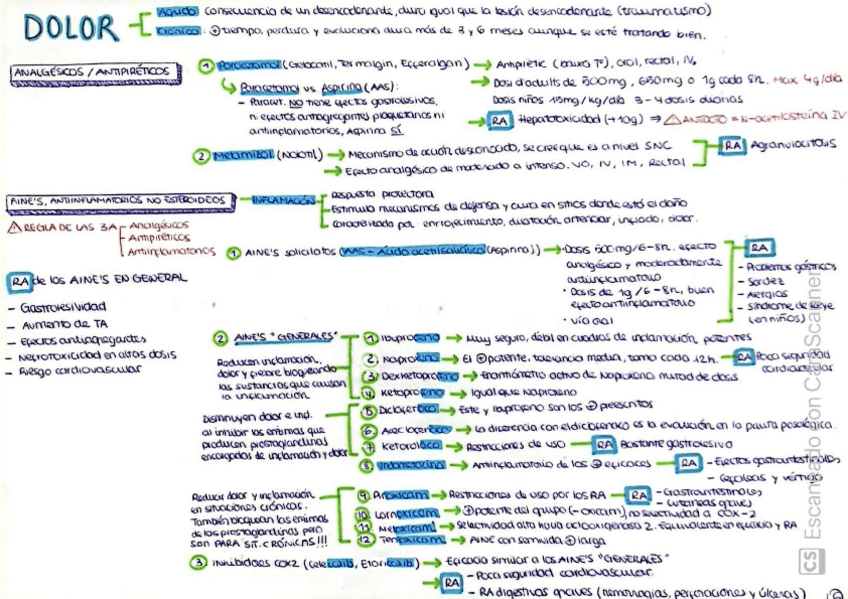 DOLOR
Agudo: consecuencia de un desencadenante, dura igual que la lesión desencadenante (traumatismo)
Crónico: ⊕ tiempo, perdura y evoluciona dura más de 3 y 6 meses aunque se esté tratando bien.
ANALGÉSICOS / ANTIPIRÉTICOS
1 Paracetamol (Gelocatil, Termalgin, Efferalgan) → Antipirétic (baixa Tº), oral, rectal, IV
Paracetamol vs. Aspirina (AAS):
- Paracet. NO tiene efectos gastrolesivos,
ni efectos antiagregantes plaquetarios ni
antiinflamatorios, Aspirina SÍ.
→ Dosi d'adults de 500mg, 650mg o 1g cada 8h. Max 4g/día
Dosis niños 15mg/kg/día 3-4 dosis diarias
→ RA Hepatotoxicidad (+10g) ⇒ ⚠ ANTÍDOTO = N-acetilcisteína IV
2 Metamizol (Nolotil) → Mecanismo de acción desconocido, se cree que es a nivel SNC
→ Efecto analgésico de moderado a intenso. VO, IV, IM, Rectal
RA Agranulocitosis
AINE'S, ANTIINFLAMATORIOS NO ESTEROIDEOS
INFLAMACIÓN
Respuesta protectora
Estimula mecanismos de defensa y cura en sitios donde está el daño
Caracterizada por enrojecimiento, dilatación arteriolar, hinchado, dolor.
⚠ REGLA DE LAS 3A
Analgésicos
Antipiréticos
Antiinflamatorios
1 AINE'S salicilatos (AAS - Ácido acetilsalicílico (Aspirina)) →
· Dosis 500mg/6-8h, efecto
analgésico y moderadamente
antiinflamatorio
· Dosis de 1g/6-8h, buen
efecto antiinflamatorio
· Vía oral
RA
- Problemas gástricos
- Sordez
- Alergias
- Síndrome de Reye
(en niños)
RA de los AINE'S EN GENERAL
- Gastrolesividad
- Aumento de TA
- Efectos antiagregantes
- Nefrotoxicidad en altas dosis
- Riesgo cardiovascular
2 AINE'S "GENERALES"
Reducen inflamación,
dolor y fiebre bloqueando
las sustancias que causan
la inflamación
1 Ibuprofeno → Muy seguro, débil en cuadros de inflamación potentes
2 Naproxeno → El ⊕ potente, tolerancia media, toma cada 12h. → RA Poca seguridad
cardiovascular
3 Dexketoprofeno → Enantiómero activo de Naproxeno mitad de dosis
4 Ketoprofeno → Igual que Naproxeno
Disminuyen dolor e infl.
al inhibir las enzimas que
producen prostaglandinas
encargados de inflamación y dolor
5 Diclofenaco → Este y Ibuprofeno son los ⊕ prescritos
6 Aceclofenaco → La diferencia con el diclofenaco es la evolución en la pauta posológica.
7 Ketorolaco → Restricciones de uso → RA Bastante gastrolesivo
8 Indometacina → Antiinflamatorio de los ⊕ eficaces → RA - Efectos gastrointestinales
- Cefaleas y vértigo
Reducir dolor y inflamación
en situaciones crónicas.
También bloquean las enzimas
de las prostaglandinas pero
son PARA SIT. CRÓNICAS!!!
9 Piroxicam → Restricciones de uso por los RA → RA - Gastrointestinales
- Cutáneas graves
10 Lornoxicam → ⊕ potente del grupo (-oxicam), no selectividad a COX-2
11 Meloxicam → Selectividad alta hacia ciclooxigenasa 2. Equivalente en eficacia y RA
12 Tenoxicam → AINE con semivida ⊕ larga
3 Inhibidores COX2 (Celecoxib, Etoricoxib) → Eficacia similar a los AINE'S "GENERALES"
→ RA - Poca seguridad cardiovascular
- RA digestivas graves (hemorragias, perforaciones y úlceras)
CS Escaneado con CamScanner